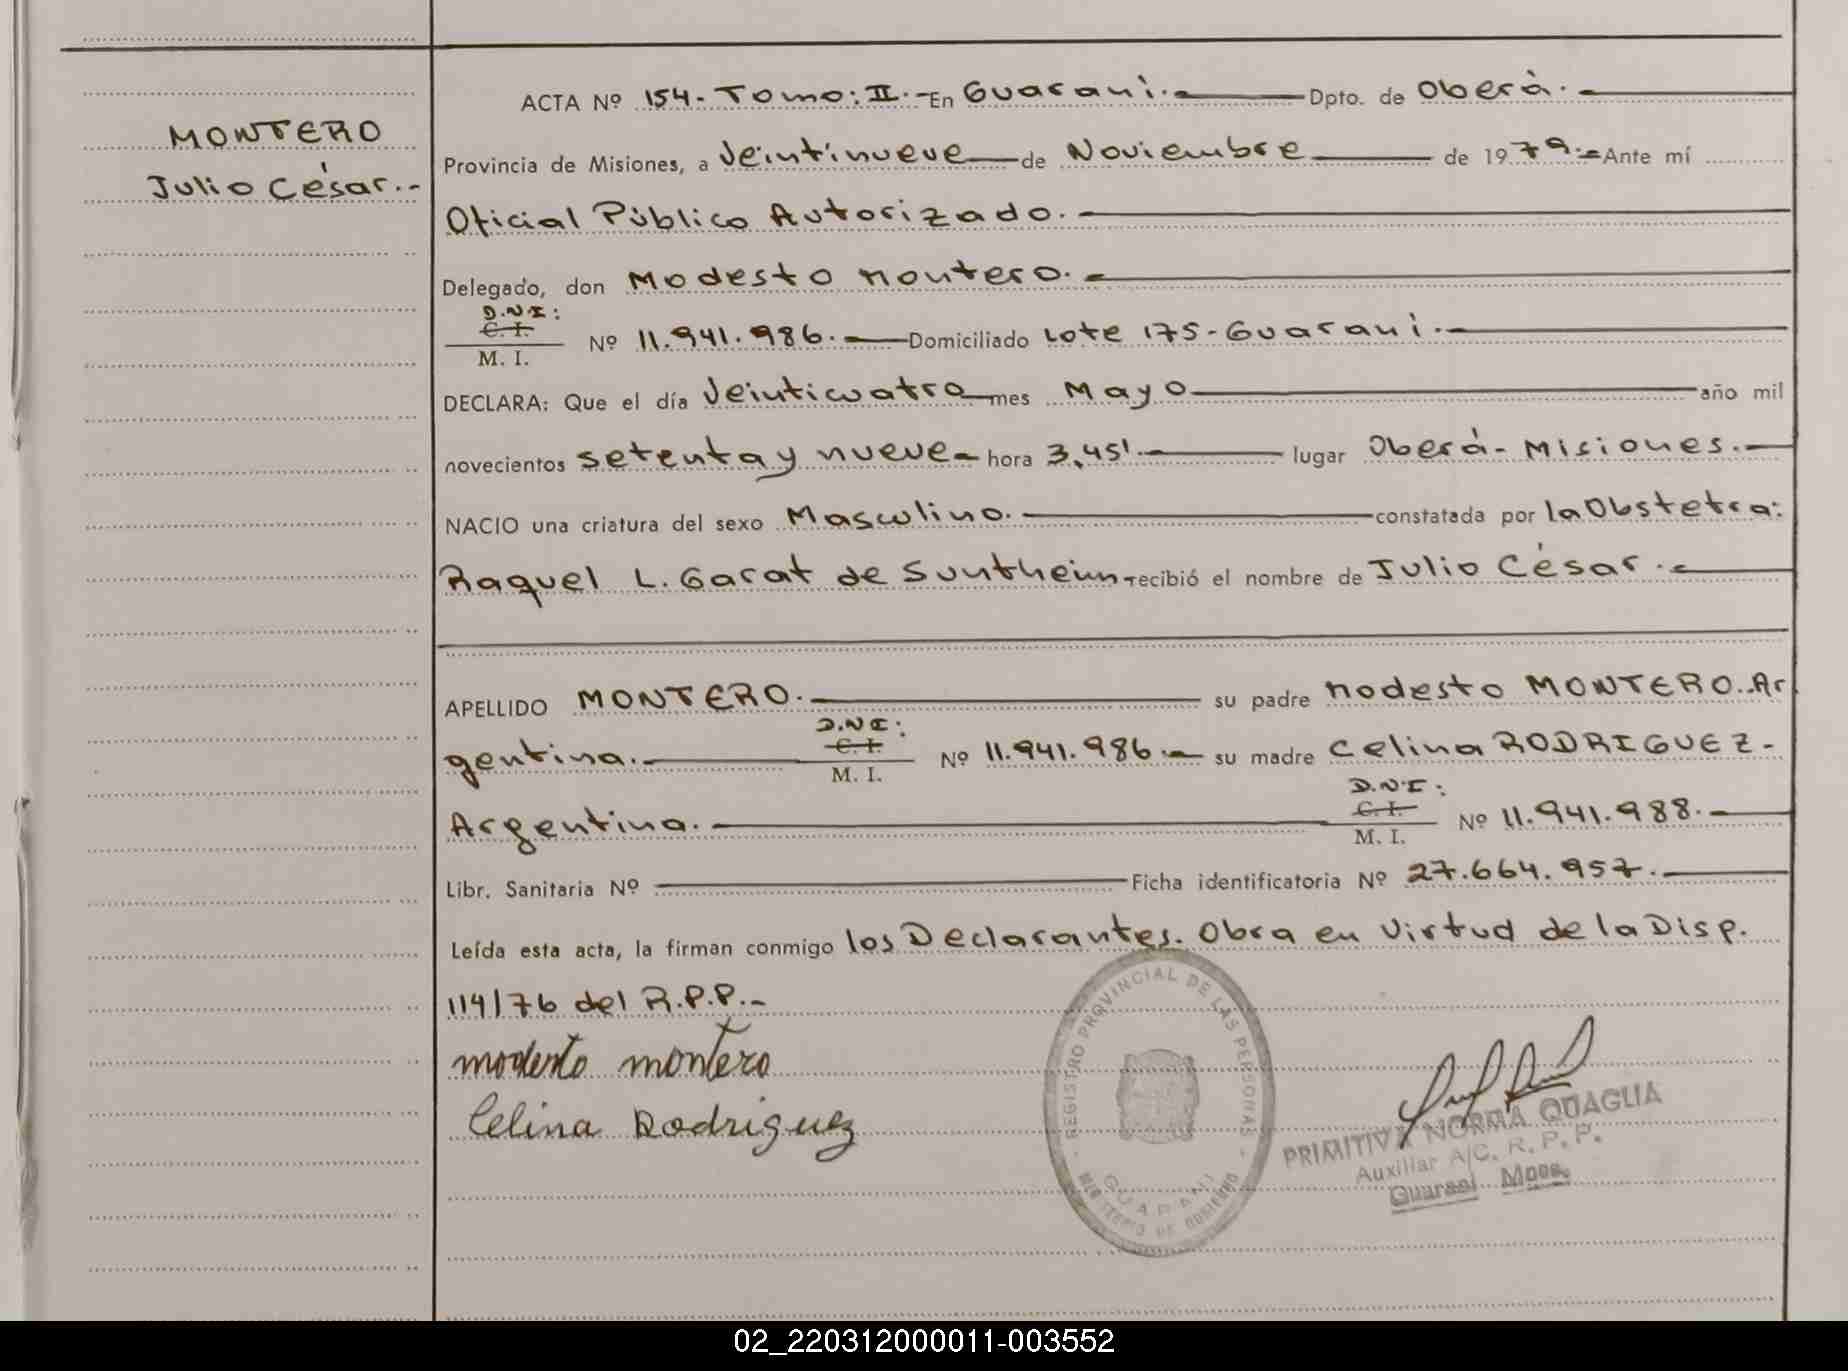 MONTERO
Julio César.-
ACTA Nº 154.- Tomo: II.- En Guaraní.- Dpto. de Oberá.-
Provincia de Misiones, a veintinueve de Noviembre de 1979.- Ante mí
Oficial Público Autorizado.-
Delegado, don Modesto Montero.-
D.N.I:
C. I.
M. I.
Nº 11.941.986.- Domiciliado Lote 175- Guaraní.-
DECLARA: Que el día Veinticuatro mes Mayo año mil
novecientos setenta y nueve- hora 3,45'.- lugar Oberá- Misiones.-
NACIO una criatura del sexo Masculino.- constatada por la Obstetra:
Raquel L. Garat de Suntheim recibió el nombre de Julio César.-
APELLIDO MONTERO.- su padre Modesto MONTERO.-Ar
gentina.- D.N.I: C. I. M. I. Nº 11.941.986.- su madre Celina RODRIGUEZ-
Argentina.- D.N.I: C. I. M. I. Nº 11.941.988.-
Libr. Sanitaria Nº Ficha identificatoria Nº 27.664.957.-
Leída esta acta, la firman conmigo los Declarantes. Obra en Virtud de la Disp.
114/76 del R.P.P.-
modesto montero
Celina Rodriguez
REGISTRO PROVINCIAL DE LAS PERSONAS
GUARANI
MINISTERIO DE GOBIERNO
PRIMITIVA NORMA QUAGLIA
Auxiliar A/C. R. P. P.
Guaraní Mnes.
02_220312000011-003552